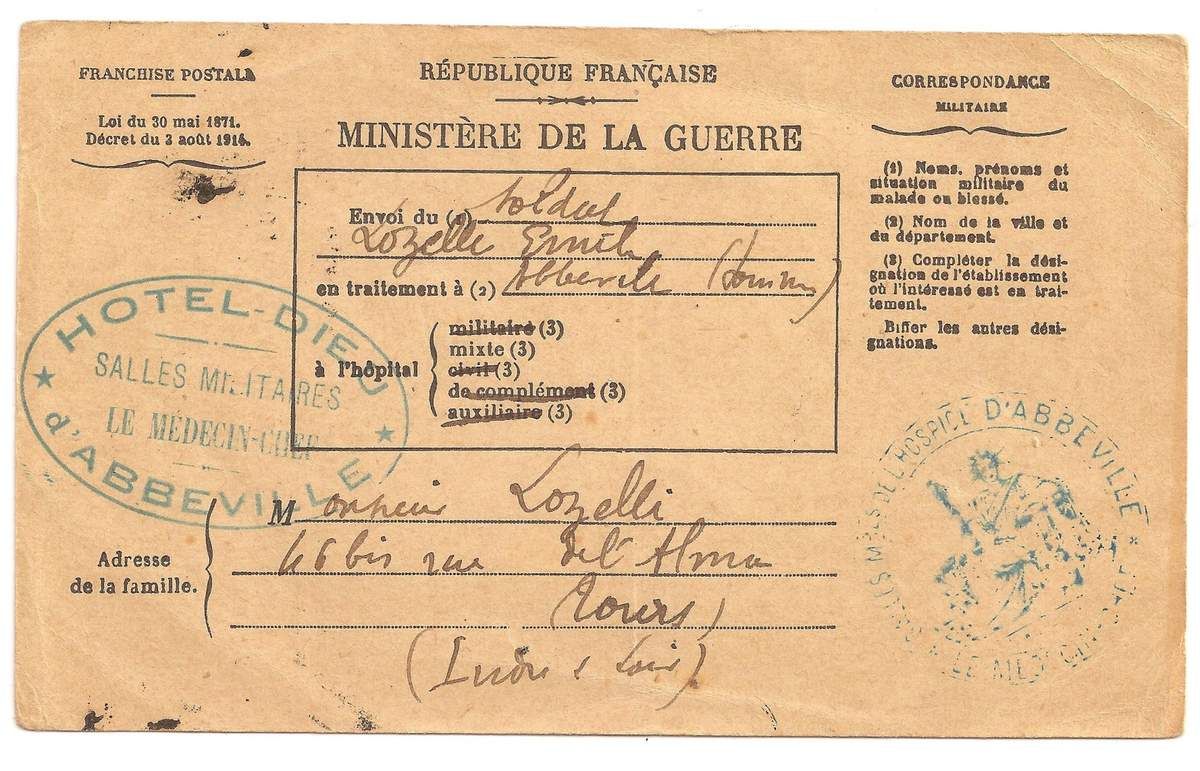 FRANCHISE POSTALE
Loi du 30 mai 1871.
Décret du 3 août 1914.
RÉPUBLIQUE FRANÇAISE
MINISTÈRE DE LA GUERRE
CORRESPONDANCE
MILITAIRE
(1) Noms, prénoms et
situation militaire du
malade ou blessé.
(2) Nom de la ville et
du département.
(3) Compléter la dési-
gnation de l'établissement
où l'intéressé est en trai-
tement.
Biffer les autres dési-
gnations.
Envoi du (1) soldat
Lozelli Emile
en traitement à (2) Abbeville (Somme)
à l'hôpital
militaire (3)
mixte (3)
civil (3)
de complément (3)
auxiliaire (3)
HOTEL-DIEU
SALLES MILITAIRES
LE MÉDECIN-CHEF
d'ABBEVILLE
Adresse
de la famille.
Monsieur Lozelli
46 bis rue de l'Alma
Tours
(Indre & Loire)
L'HOSPICE D'ABBEVILLE